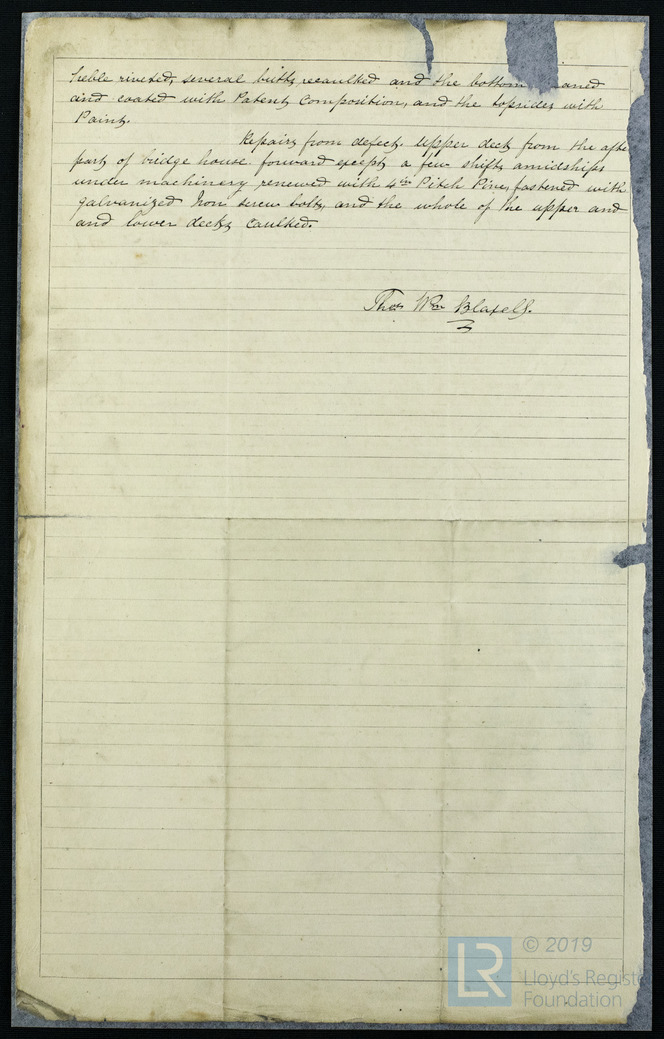 treble riveted, several butts recaulked and the bottom aned
and coated with Patent Composition, and the topsides with
Paint.
Repairs from defect. Upper deck from the afte
part of bridge house forward except a few shifts amidships
under machinery renewed with 4in Pitch Pine, fastened with
galvanized Iron screw bolts, and the whole of the upper and
and lower decks caulked.
Thos Wm Blaxell.
© 2019
LR
Lloyd's Registe
Foundation